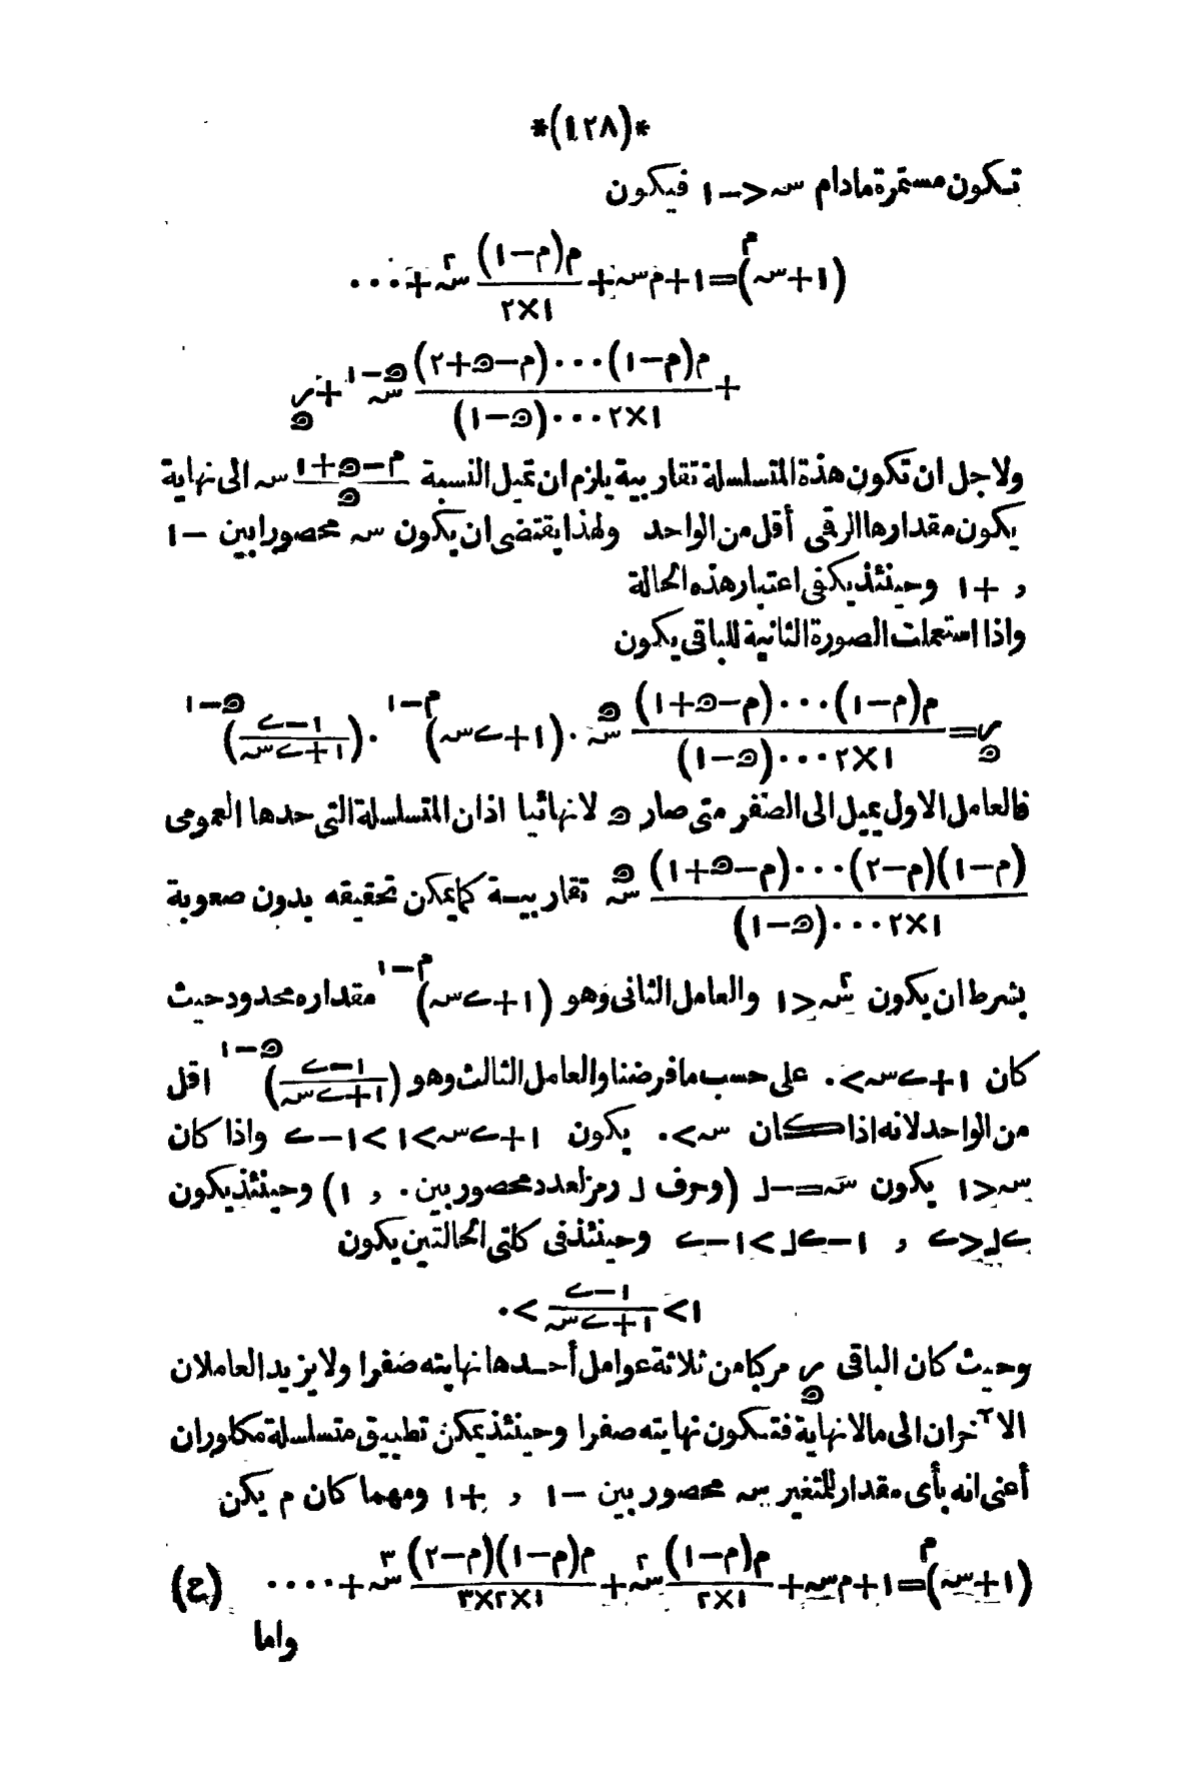 *(١٢٨)*
تكون مستمرة مادام س > -١ فيكون
(١+س)^م = ١+م س + م(م-١)/١×٢ س^٢ + ...
+ م(م-١)...(م-ن+٢)/١×٢...(ن-١) س^(ن-١) + ر_ن
ولاجل ان تكون هذة المتسلسلة تقاربية يلزم ان تميل النسبة م-ن+١/ن س الى نهاية
يكون مقدارها الرقى أقل من الواحد ولهذا يقتضى ان يكون س محصورا بين -١
و +١ وحينئذ يكفى اعتبار هذه الحالة
واذا استعملت الصورة الثانية للباقى يكون
ر_ن = م(م-١)...(م-ن+١)/١×٢...(ن-١) س^ن . (١+ى س)^(م-١) . (١-ى/١+ى س)^(ن-١)
فالعامل الاول يميل الى الصفر متى صار ن لانهائيا اذ ان المتسلسلة التى حدها العمومى
(م-١)(م-٢)...(م-ن+١)/١×٢...(ن-١) س^ن تقاربية كما يمكن تحقيقه بدون صعوبة
بشرط ان يكون س^٢ > ١ والعامل الثانى وهو (١+ى س)^(م-١) مقداره محدود حيث
كان ١+ى س < ٠ على حسب ما فرضنا والعامل الثالث وهو (١-ى/١+ى س)^(ن-١) اقل
من الواحد لانه اذا كان س < ٠ يكون ١+ى س < ١ < ١-ى واذا كان
س > ١ يكون س = -ل (وحرف ل رمز لعدد محصور بين ٠ و ١) وحينئذ يكون
ى ل > ى و ١-ى ل < ١-ى وحينئذ فى كلتى الحالتين يكون
١ < ١-ى/١+ى س < ٠
وحيث كان الباقى ر_ن مركبا من ثلاثة عوامل أحدها نهايته صفرا ولا يزيد العاملان
الآخران الى مالانهاية فتكون نهايته صفرا وحينئذ يمكن تطبيق متسلسلة مكلوران
أعنى انه بأى مقدار للمتغير س محصور بين -١ و +١ ومهما كان م يكن
(١+س)^م = ١+م س + م(م-١)/١×٢ س^٢ + م(م-١)(م-٢)/١×٢×٣ س^٣ + .... (ح)
واما